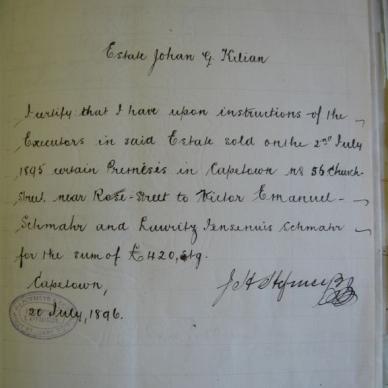 Estate Johan G. Kilian
I certify that I have upon instructions of the
Executors in said Estate sold on the 2nd July
1895 certain Premesis in Capetown no 56 Church-
Street near Rose-Street to Victor Emanuel
Schmahr and Lauritz Jensenuis Schmahr
for the sum of £420, stg.
Capetown,
20 July, 1896.